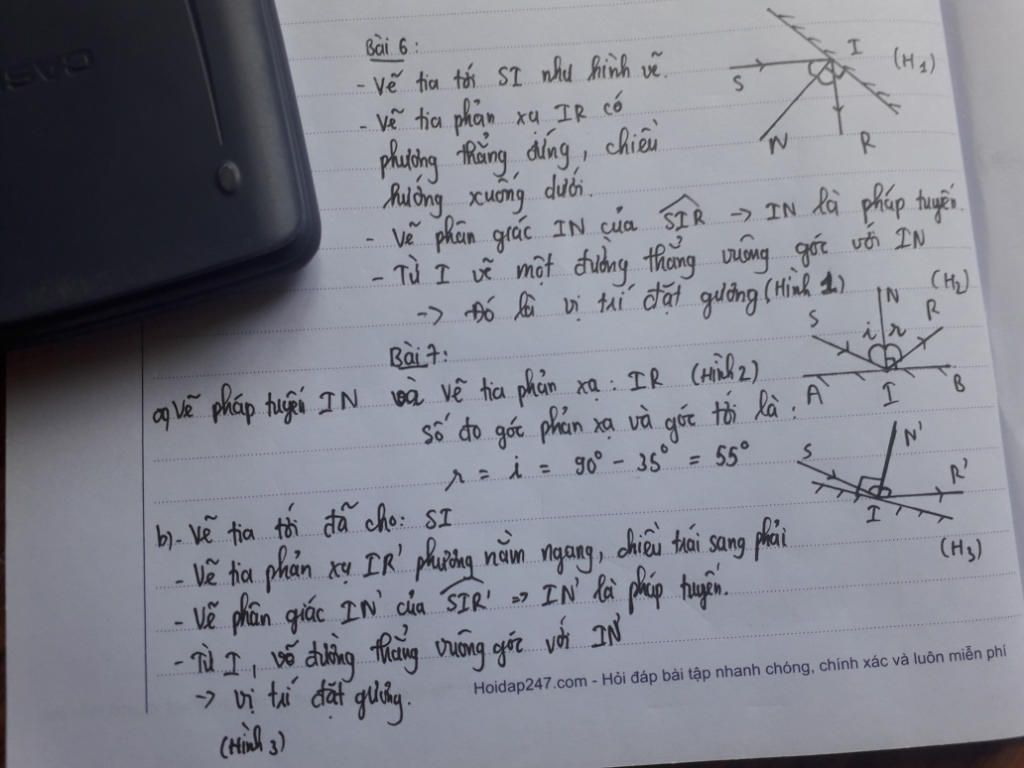 CASIO
Bài 6:
- Vẽ tia tới SI như hình vẽ.
- Vẽ tia phản xạ IR có
phương thẳng đứng, chiều
hướng xuống dưới.
- Vẽ phân giác IN của SIR → IN là pháp tuyến.
- Từ I vẽ một đường thẳng vuông góc với IN
→ Đó là vị trí đặt gương (Hình 1)
S I N R (H1)
Bài 7:
a) Vẽ pháp tuyến IN và vẽ tia phản xạ: IR (Hình 2)
số đo góc phản xạ và góc tới là:
r = i = 90° - 35° = 55°
S N R i r A I B (H2)
b) - Vẽ tia tới đã cho: SI
- Vẽ tia phản xạ IR' phương nằm ngang, chiều trái sang phải
- Vẽ phân giác IN' của SIR' => IN' là pháp tuyến.
- Từ I, vẽ đường thẳng vuông góc với IN'
→ vị trí đặt gương.
(Hình 3)
S N' R' I (H3)
Hoidap247.com - Hỏi đáp bài tập nhanh chóng, chính xác và luôn miễn phí